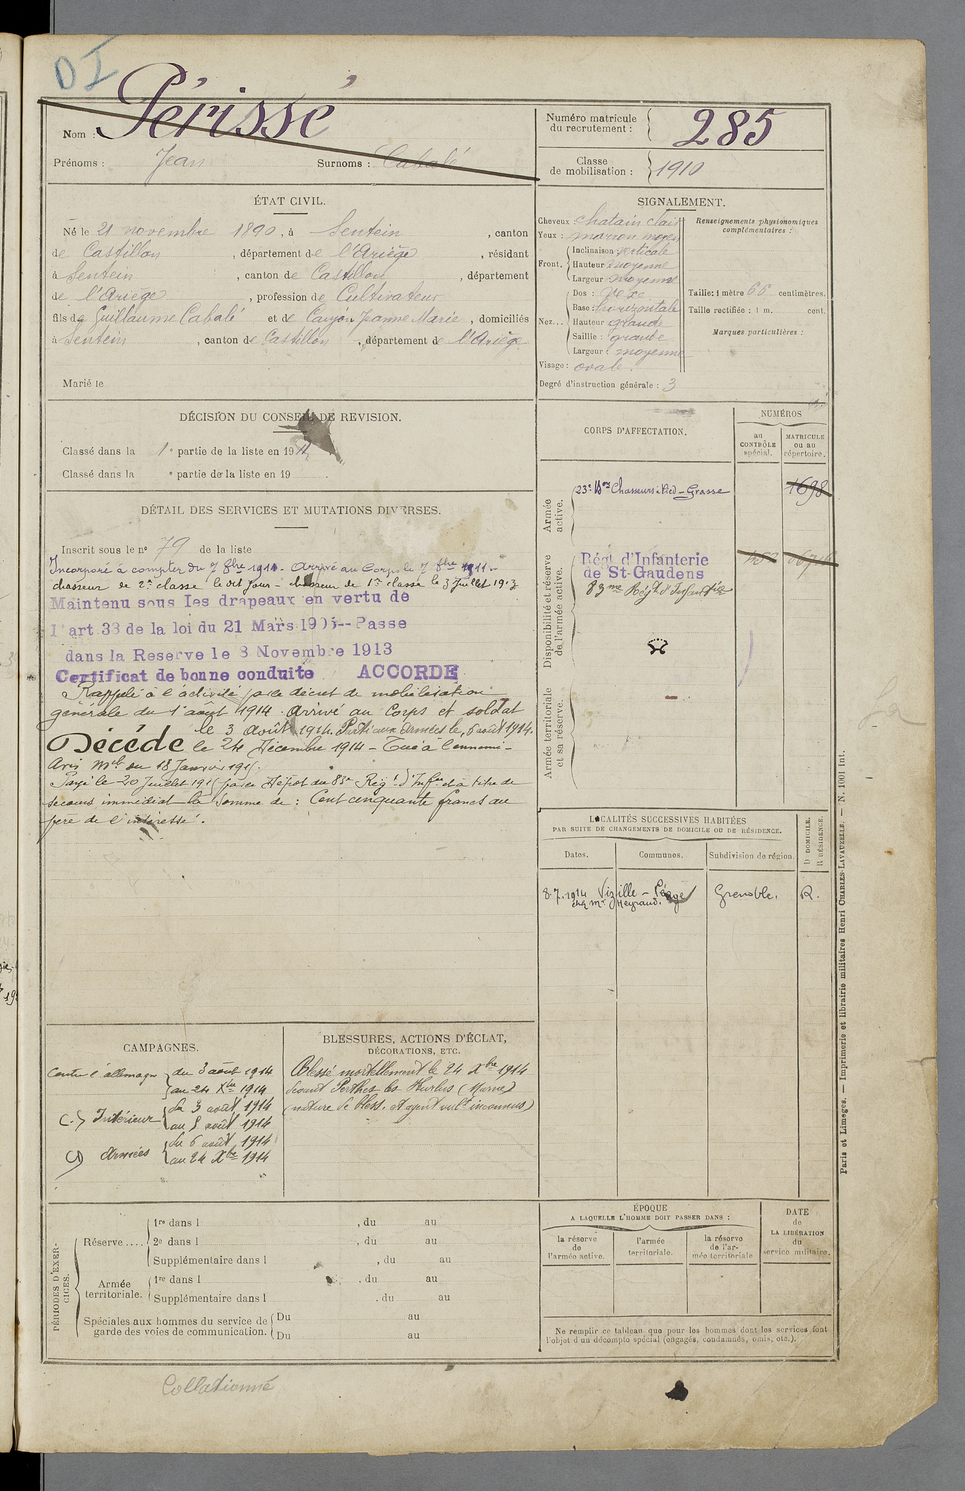 DI
Nom : Périssé
Prénoms : Jean Surnoms : Cabalé
Numéro matricule du recrutement : 285
Classe de mobilisation : 1910
ÉTAT CIVIL.
Né le 21 novembre 1890, à Sentein, canton
de Castillon, département de l'Ariège, résidant
à Sentein, canton de Castillon, département
de l'Ariège, profession de Cultivateur
fils de Guillaume Cabalé et de Jeanne Marie, domiciliés
à Sentein, canton de Castillon, département de l'Ariège
Marié le
SIGNALEMENT.
Cheveux : chatain clair
Yeux : marron moyen
Front. Inclinaison verticale
Hauteur moyenne
Largeur moyenne
Nez... Dos :
Base : horizontale
Hauteur grande
Saillie : grande
Largeur : moyenne
Visage : ovale.
Degré d'instruction générale : 3
Renseignements physionomiques complémentaires :
Taille : 1 mètre 66 centimètres.
Taille rectifiée : 1 m. cent.
Marques particulières :
DÉCISION DU CONSEIL DE REVISION.
Classé dans la 1e partie de la liste en 1911
Classé dans la e partie de la liste en 19
DÉTAIL DES SERVICES ET MUTATIONS DIVERSES.
Inscrit sous le no 79 de la liste
Incorporé à compter du 7 8bre 1911. Arrivé au Corps le 7 8bre 1911.
chasseur de 2e classe le dit jour - chasseur de 1re classe le 3 Juillet 1913.
Maintenu sous les drapeaux en vertu de
l'art 33 de la loi du 21 Mars 1905--Passe
dans la Reserve le 8 Novembre 1913
Certificat de bonne conduite ACCORDÉ
Rappelé à l'activité par le décret de mobilisation
générale du 1er août 1914. Arrivé au Corps et soldat
le 3 Août 1914. Parti aux armées le 6 août 1914.
Décédé le 24 Décembre 1914 - Tué à l'ennemi -
Avis Mel du 18 Janvier 1915.
Payé le 20 Juillet 1915 par le Dépôt du 83e Régt d'Infie à titre de
secours immédiat la somme de : Cent cinquante francs au
père de l'intéressé.
CORPS D'AFFECTATION.
NUMÉROS
au CONTRÔLE spécial.
MATRICULE ou au répertoire.
Armée active.
23e Bon Chasseurs à Pied - Grasse 1698
Disponibilité et réserve de l'armée active.
Régt d'Infanterie
de St-Gaudens
83me Régt d'Infanterie
Armée territoriale et sa réserve.
LOCALITÉS SUCCESSIVES HABITÉES
PAR SUITE DE CHANGEMENTS DE DOMICILE OU DE RÉSIDENCE.
Dates. Communes. Subdivision de région. D DOMICILE. R RÉSIDENCE.
8.7.1914 Vizille - Grenoble. R.
chez Mr
CAMPAGNES.
Contre l'allemagne du 3 août 1914
au 24 Xbre 1914
(C.) Intérieur du 3 août 1914
au 5 août 1914
(C) Armées du 6 août 1914
au 24 Xbre 1914
BLESSURES, ACTIONS D'ÉCLAT,
DÉCORATIONS, ETC.
Blessé mortellement le 24 Xbre 1914
devant Perthes les Hurlus (Marne)
(nature de bless. et agent vult inconnus)
PÉRIODES D'EXERCICES.
Réserve .... 1re dans l , du au
2e dans l , du au
Supplémentaire dans l , du au
Armée territoriale. 1re dans l , du au
Supplémentaire dans l , du au
Spéciales aux hommes du service de garde des voies de communication. Du au
Du au
ÉPOQUE
A LAQUELLE L'HOMME DOIT PASSER DANS :
la réserve de l'armée active.
l'armée territoriale.
la réserve de l'armée territoriale
DATE de LA LIBÉRATION du service militaire.
Ne remplir ce tableau que pour les hommes dont les services font
l'objet d'un décompte spécial (engagés, condamnés, omis, etc.).
Paris et Limoges. — Imprimerie et librairie militaires Henri CHARLES-LAVAUZELLE. — N. 1001 Int.
Collationné